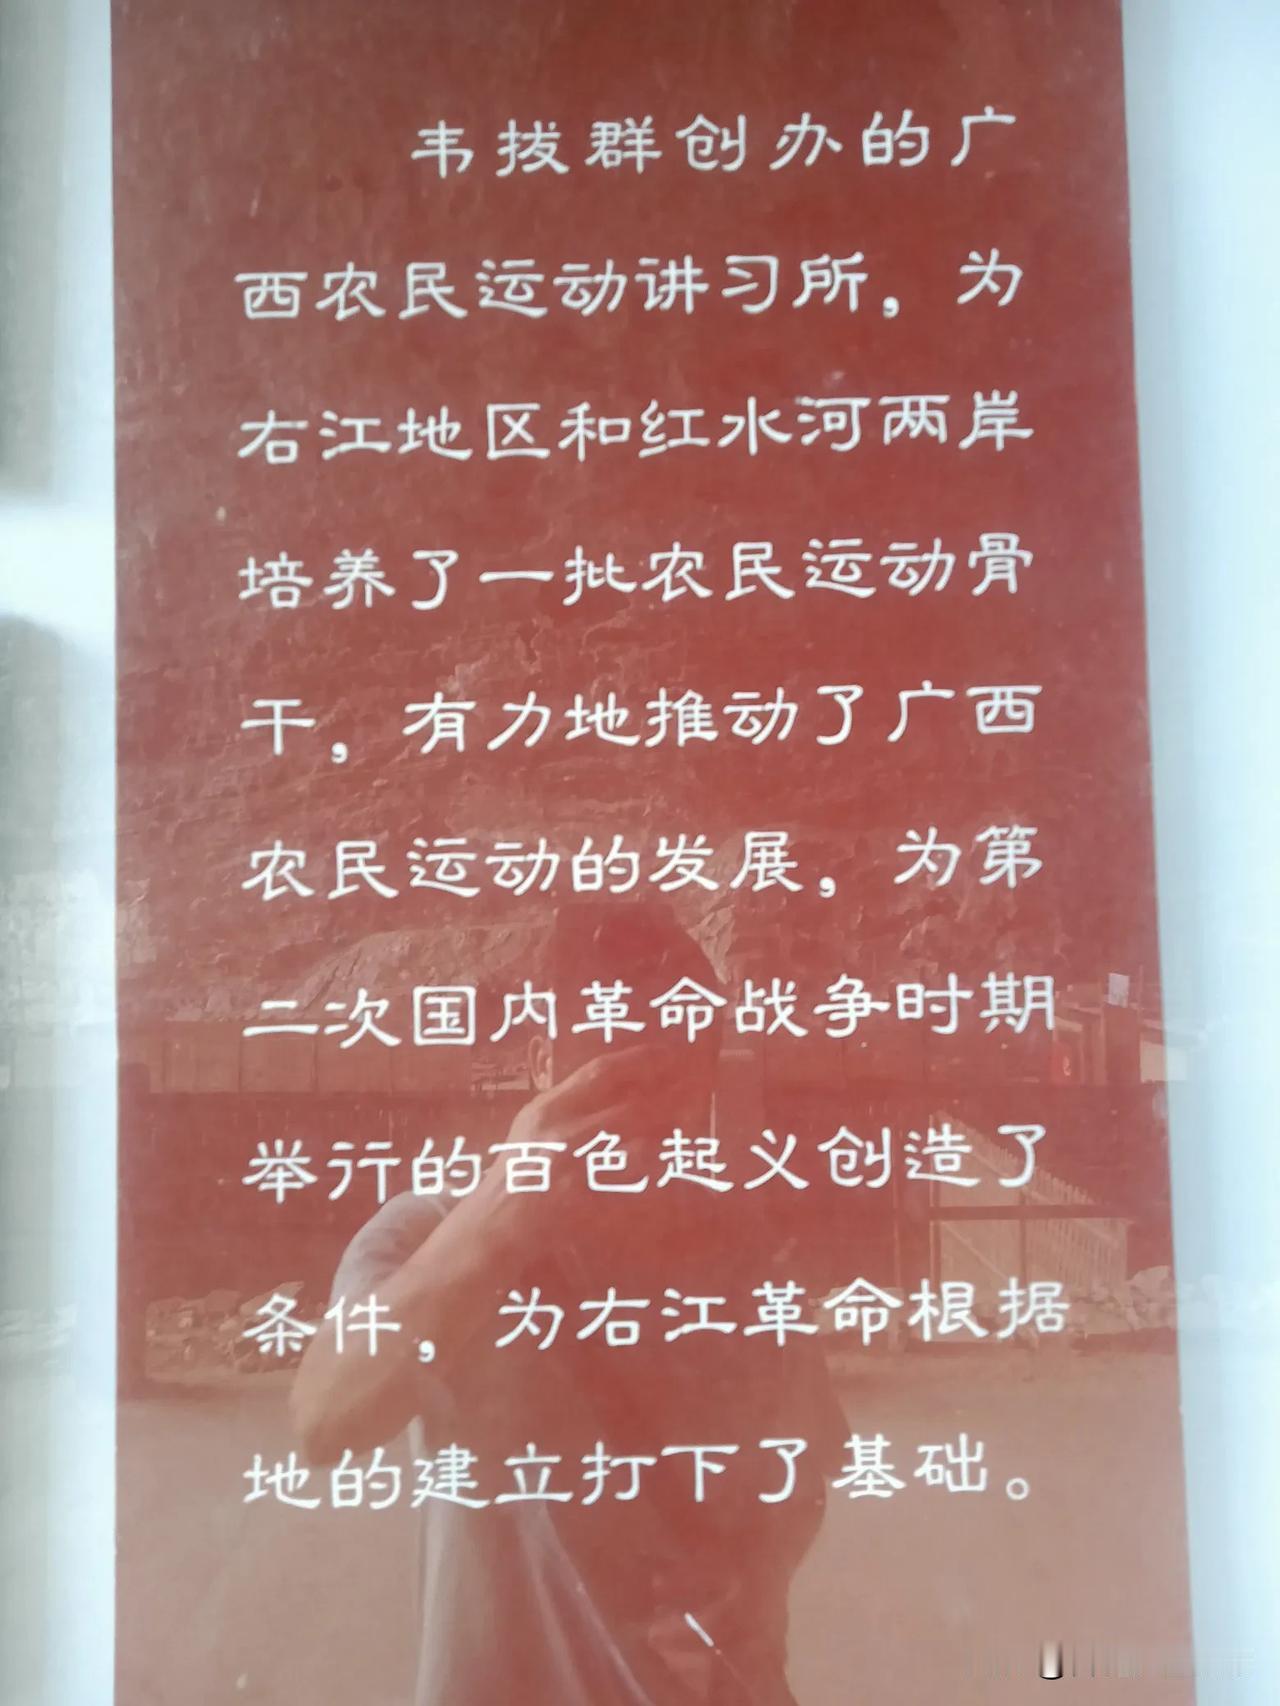 韦拔群创办的广
西农民运动讲习所，为
右江地区和红水河两岸
培养了一批农民运动骨
干，有力地推动了广西
农民运动的发展，为第
二次国内革命战争时期
举行的百色起义创造了
条件，为右江革命根据
地的建立打下了基础。